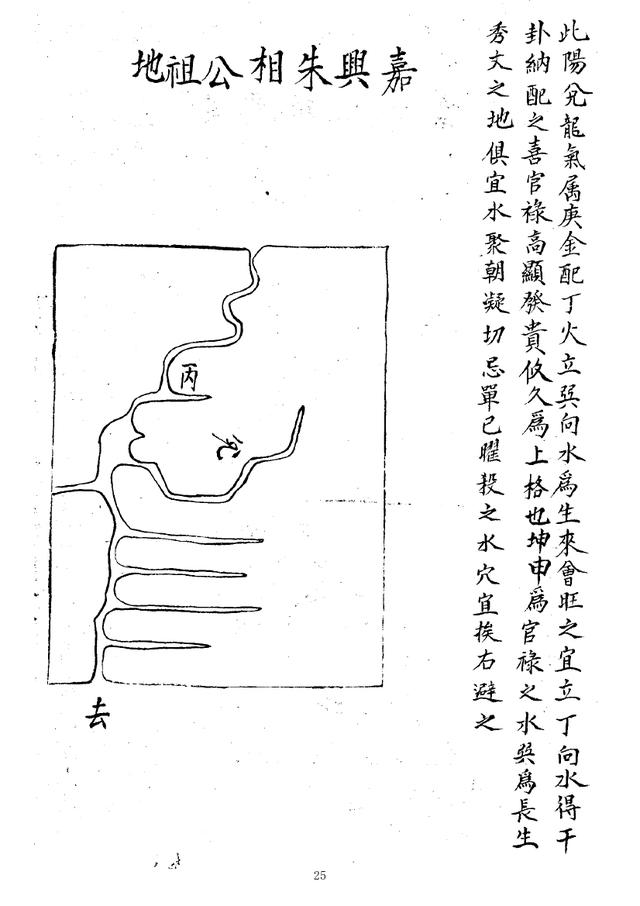 此陽兌龍氣属庚金配丁火立巽向水爲生來會旺之宜立丁向水得干
卦納配之喜官祿高顯發貴攸久爲上格也坤申爲官祿之水巽爲長生
秀文之地俱宜水聚朝凝切忌單巳曜殺之水穴宜挨右避之
嘉興朱相公祖地
丙
兌
去
25